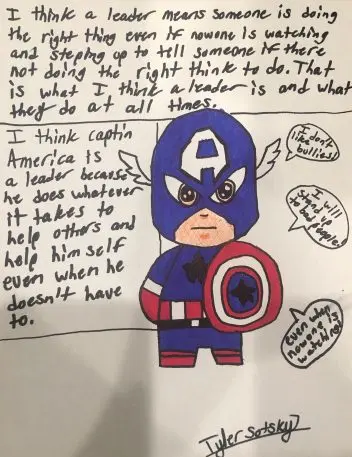 I think a leader means someone is doing
the right thing even if nowone is watching
and steping up to tell someone if there
not doing the right think to do. That
is what I think a leader is and what
they do at all times.
I think captin
America is
a leader because
he does whatever
it takes to
help others and
help him self
even when he
doesn't have
to.
A
I don't
like
bullies!
I will
stand up
to bad people!
even when
nowone is
watching!
Tyler Sotsky